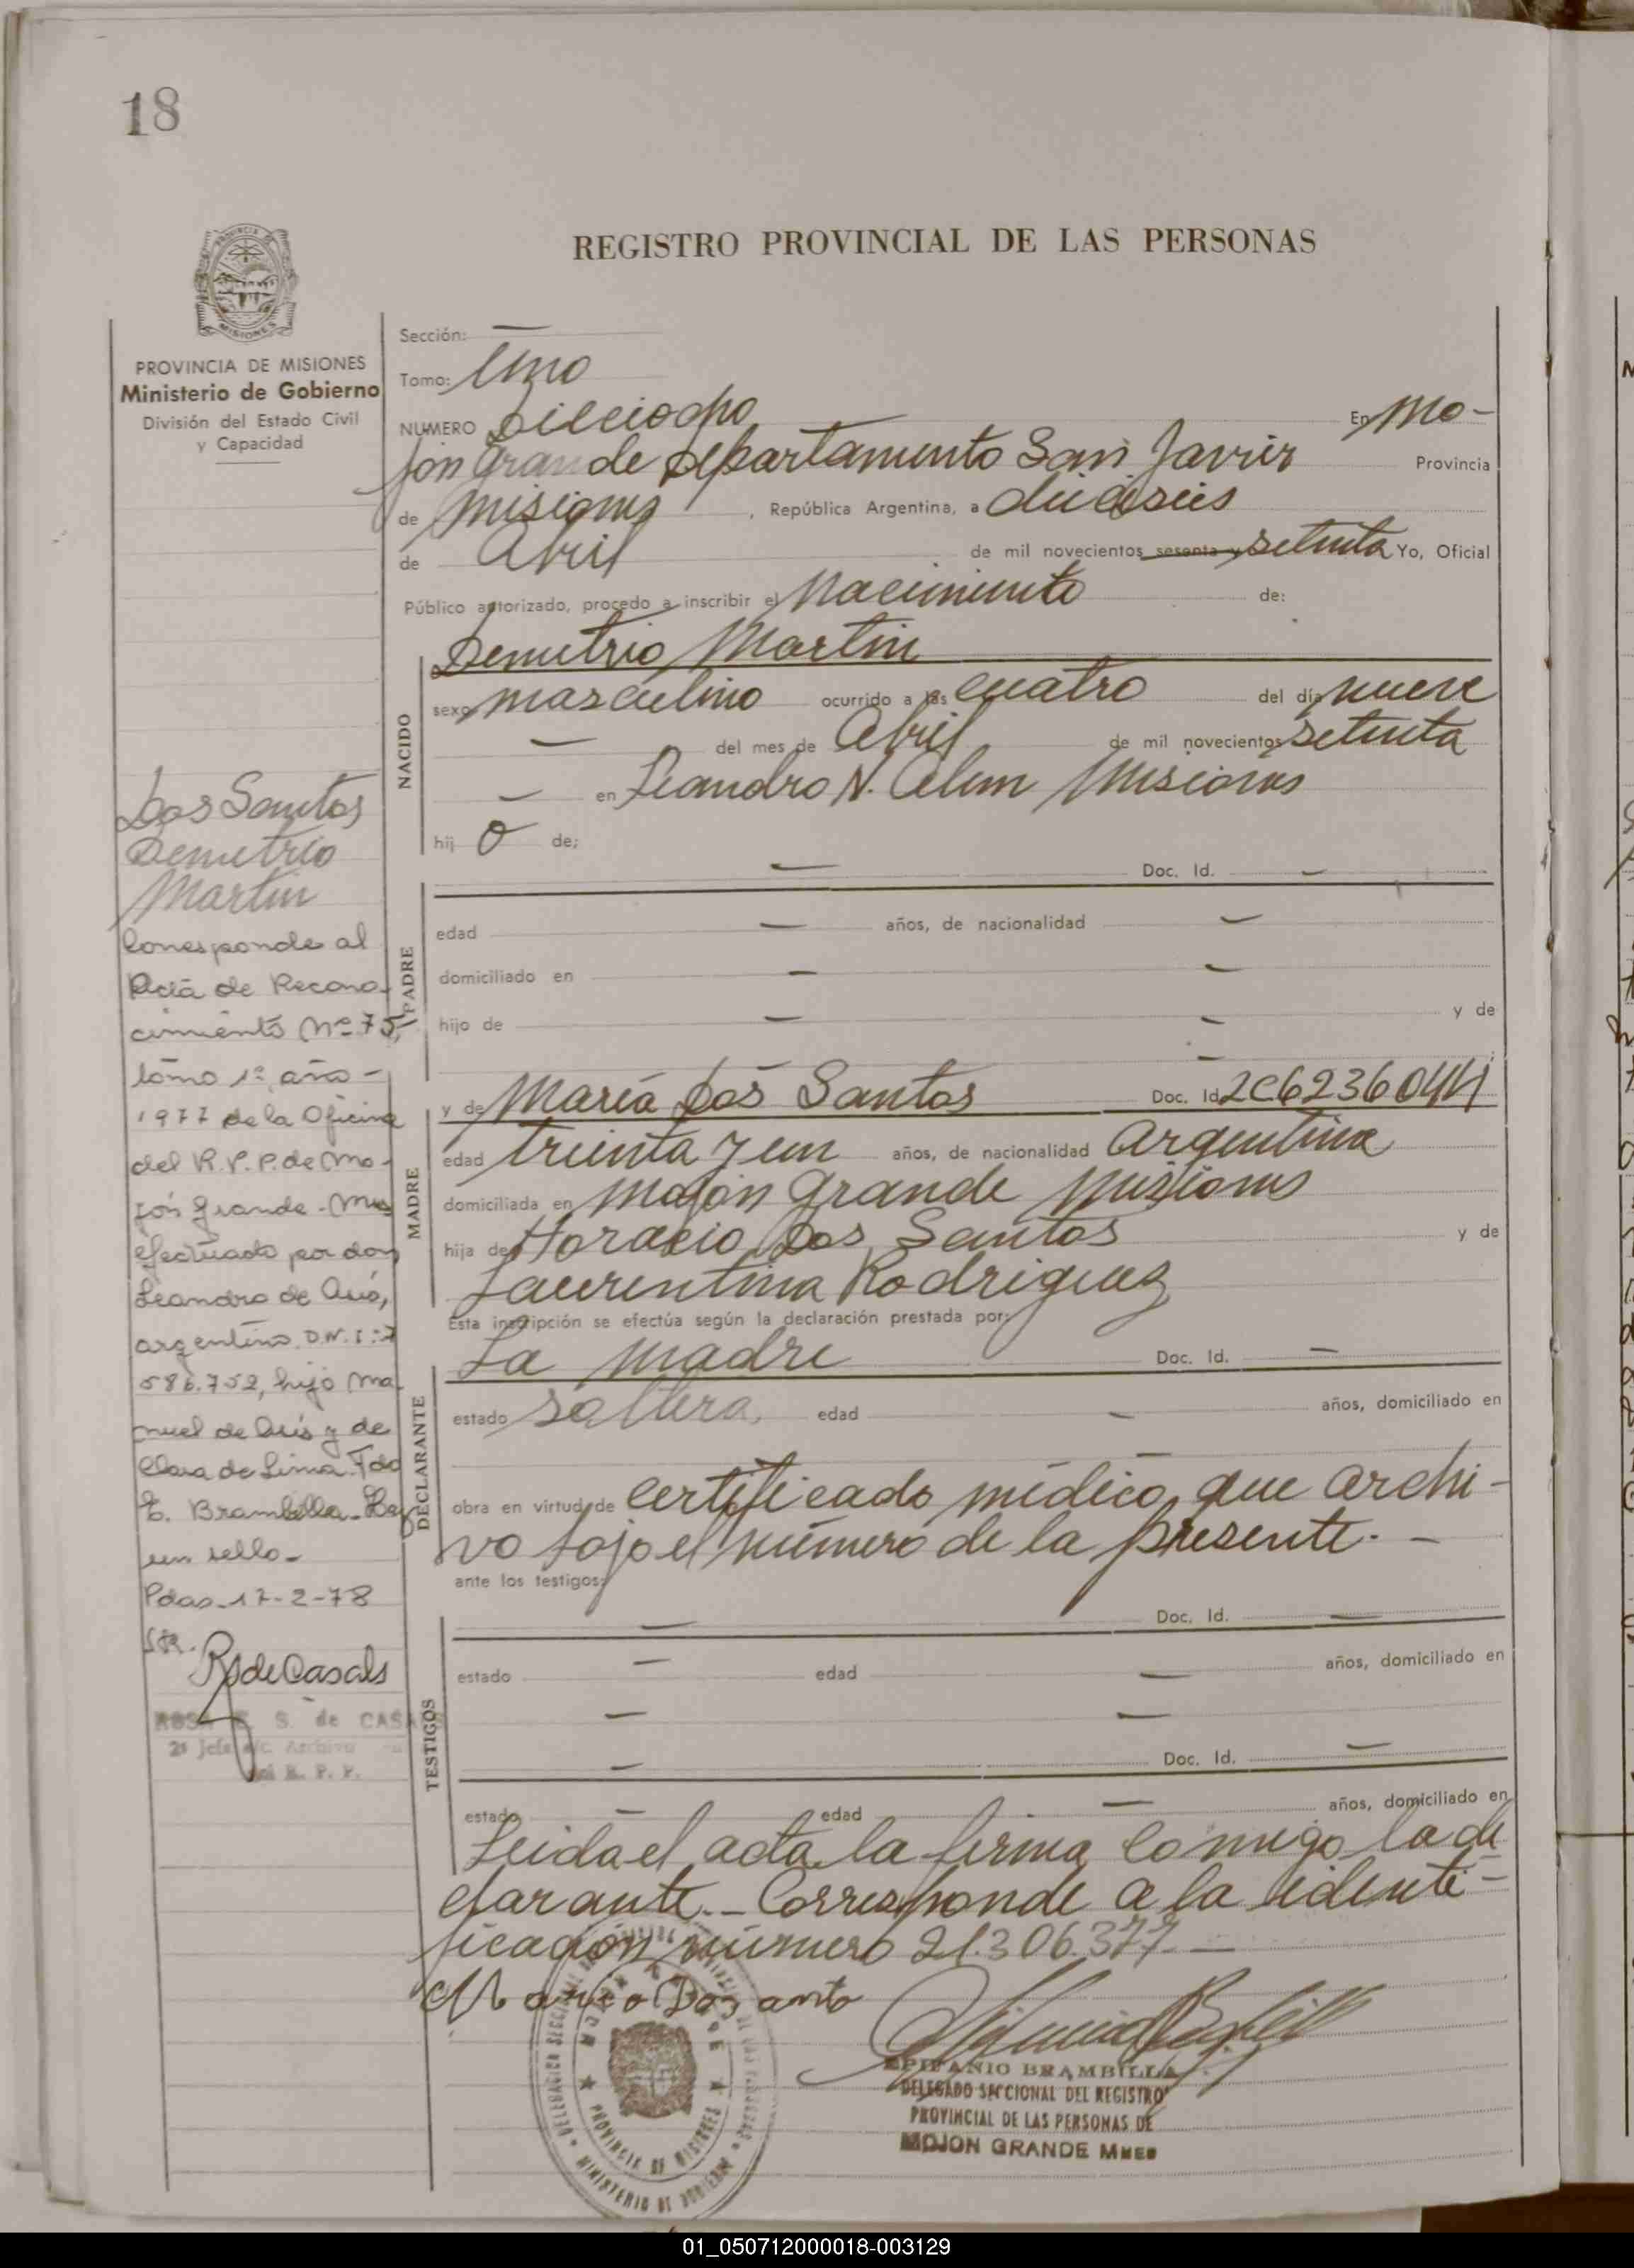 18
REGISTRO PROVINCIAL DE LAS PERSONAS
MISIONES
PROVINCIA DE MISIONES
Ministerio de Gobierno
División del Estado Civil
y Capacidad
Dos Santos
Demetrio
Martin
Corresponde al
Acta de Recono-
cimiento Nº 75,
tomo 1º, año -
1977 de la Oficina
del R. P. P. de Mo-
jón Grande - Mnes
efectuado por don
Leandro de Asís,
argentino, D.N.I: 7
586.752, hijo Ma-
nuel de Asís y de
Clara de Lima. Fdo
E. Brambilla. Hay
un sello -
Pdas. 17-2-78
R. de Casals
ROSA E. S. de CASALS
2º Jefe a/c. Archivo
del R. P. P.
Sección: —
Tomo: Uno
NUMERO Dieciocho En Mo-
jón Grande Departamento San Javier Provincia
de Misiones, República Argentina, a dieciseis
de Abril de mil novecientos sesenta y setenta Yo, Oficial
Público autorizado, procedo a inscribir el Nacimiento de:
Demetrio Martin
NACIDO
sexo masculino ocurrido a las cuatro del día nueve
— del mes de Abril de mil novecientos setenta
— en Leandro N. Alem Misiones
hij o de:
— Doc. Id. —
PADRE
edad — años, de nacionalidad —
domiciliado en — —
hijo de — — y de
—
MADRE
y de María Dos Santos Doc. Id. 2C6236044
edad treinta y un años, de nacionalidad Argentina
domiciliada en Mojón Grande Misiones
hija de Horacio Dos Santos y de
Laurentina Rodriguez
Esta inscripción se efectúa según la declaración prestada por:
La madre Doc. Id. —
DECLARANTE
estado soltera, edad — años, domiciliado en
— —
obra en virtud de certificado médico que archi-
vo bajo el número de la presente. —
ante los testigos:
— Doc. Id. —
TESTIGOS
estado — edad — años, domiciliado en
— —
— Doc. Id. —
estado — edad — años, domiciliado en
Leida el acta la firma comigo la de
clarante. - Corresponde a la identi-
ficación número 21.306.377. —
Maria Dosanto
EPIFANIO BRAMBILLA
DELEGADO SECCIONAL DEL REGISTRO
PROVINCIAL DE LAS PERSONAS DE
MOJON GRANDE MNES
PROVINCIA DE MISIONES
MINISTERIO DE GOBIERNO
01_050712000018-003129